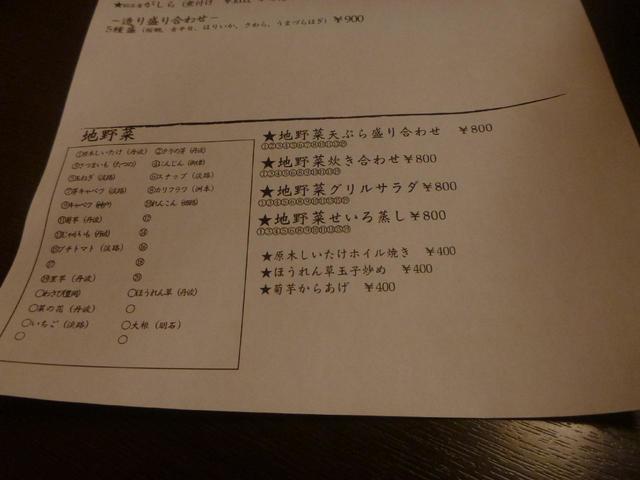 がしら（煮付け
−造り盛り合わせ− ￥900
5種盛（桜鯛、金目鯛、はりいか、さわら、うまづらはぎ）
地野菜
①原木しいたけ（丹波） ②タラの芽（丹波）
③さつまいも（たつの） ④にんじん
⑤玉ねぎ（淡路） ⑥スナップ（淡路）
⑦芽キャベツ（淡路） ⑧カリフラワ（洲本）
⑨キャベツ（神戸） ⑩れんこん
⑪菊芋（丹波） ⑫
⑬じゃがいも（丹波） ⑭
⑮プチトマト（淡路） ⑯
⑰ ⑱
⑲里芋（丹波） ⑳
〇わさび（豊岡） 〇ほうれん草（丹波）
〇菜の花（丹波） 〇
〇いちご（淡路） 〇大根（明石）
〇 〇
★地野菜天ぷら盛り合わせ ￥800
★地野菜炊き合わせ￥800
★地野菜グリルサラダ￥800
★地野菜せいろ蒸し￥800
★原木しいたけホイル焼き ￥400
★ほうれん草玉子炒め ￥400
★菊芋からあげ ￥400